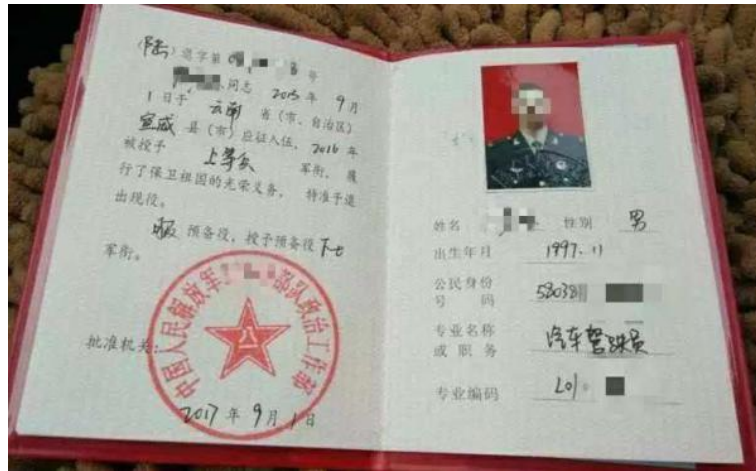 （陆）退字第 号
同志 2015 年 9 月
1 日于 云南 省（市、自治区）
宣威 县（市）应征入伍，2016 年
被授予 上等兵 军衔，履
行了保卫祖国的光荣义务，特准予退
出现役。
服 预备役，授予预备役 下士
军衔。
批准机关：
中国人民解放军 部队政治工作部
八一
2017 年 9 月 1 日
姓名 性别 男
出生年月 1997.11
公民身份
号 码
专业名称 汽车驾驶员
或 职 务
专业编码